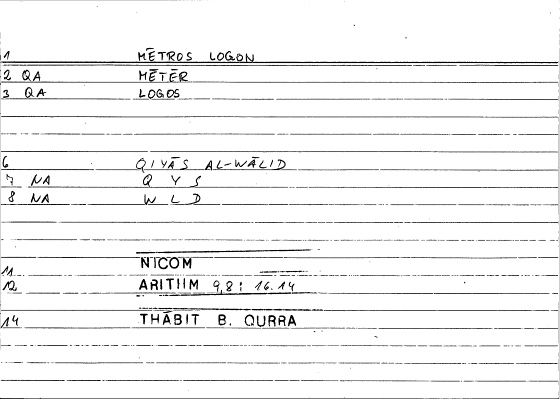 1 MĒTROS LOGON
2 QA MĒTĒR
3 QA LOGOS
6 QIYĀS AL-WĀLID
7 NA Q Y S
8 NA W L D
11 NICOM
12 ARITIIM 9,8 : 16.14
14 THĀBIT B. QURRA